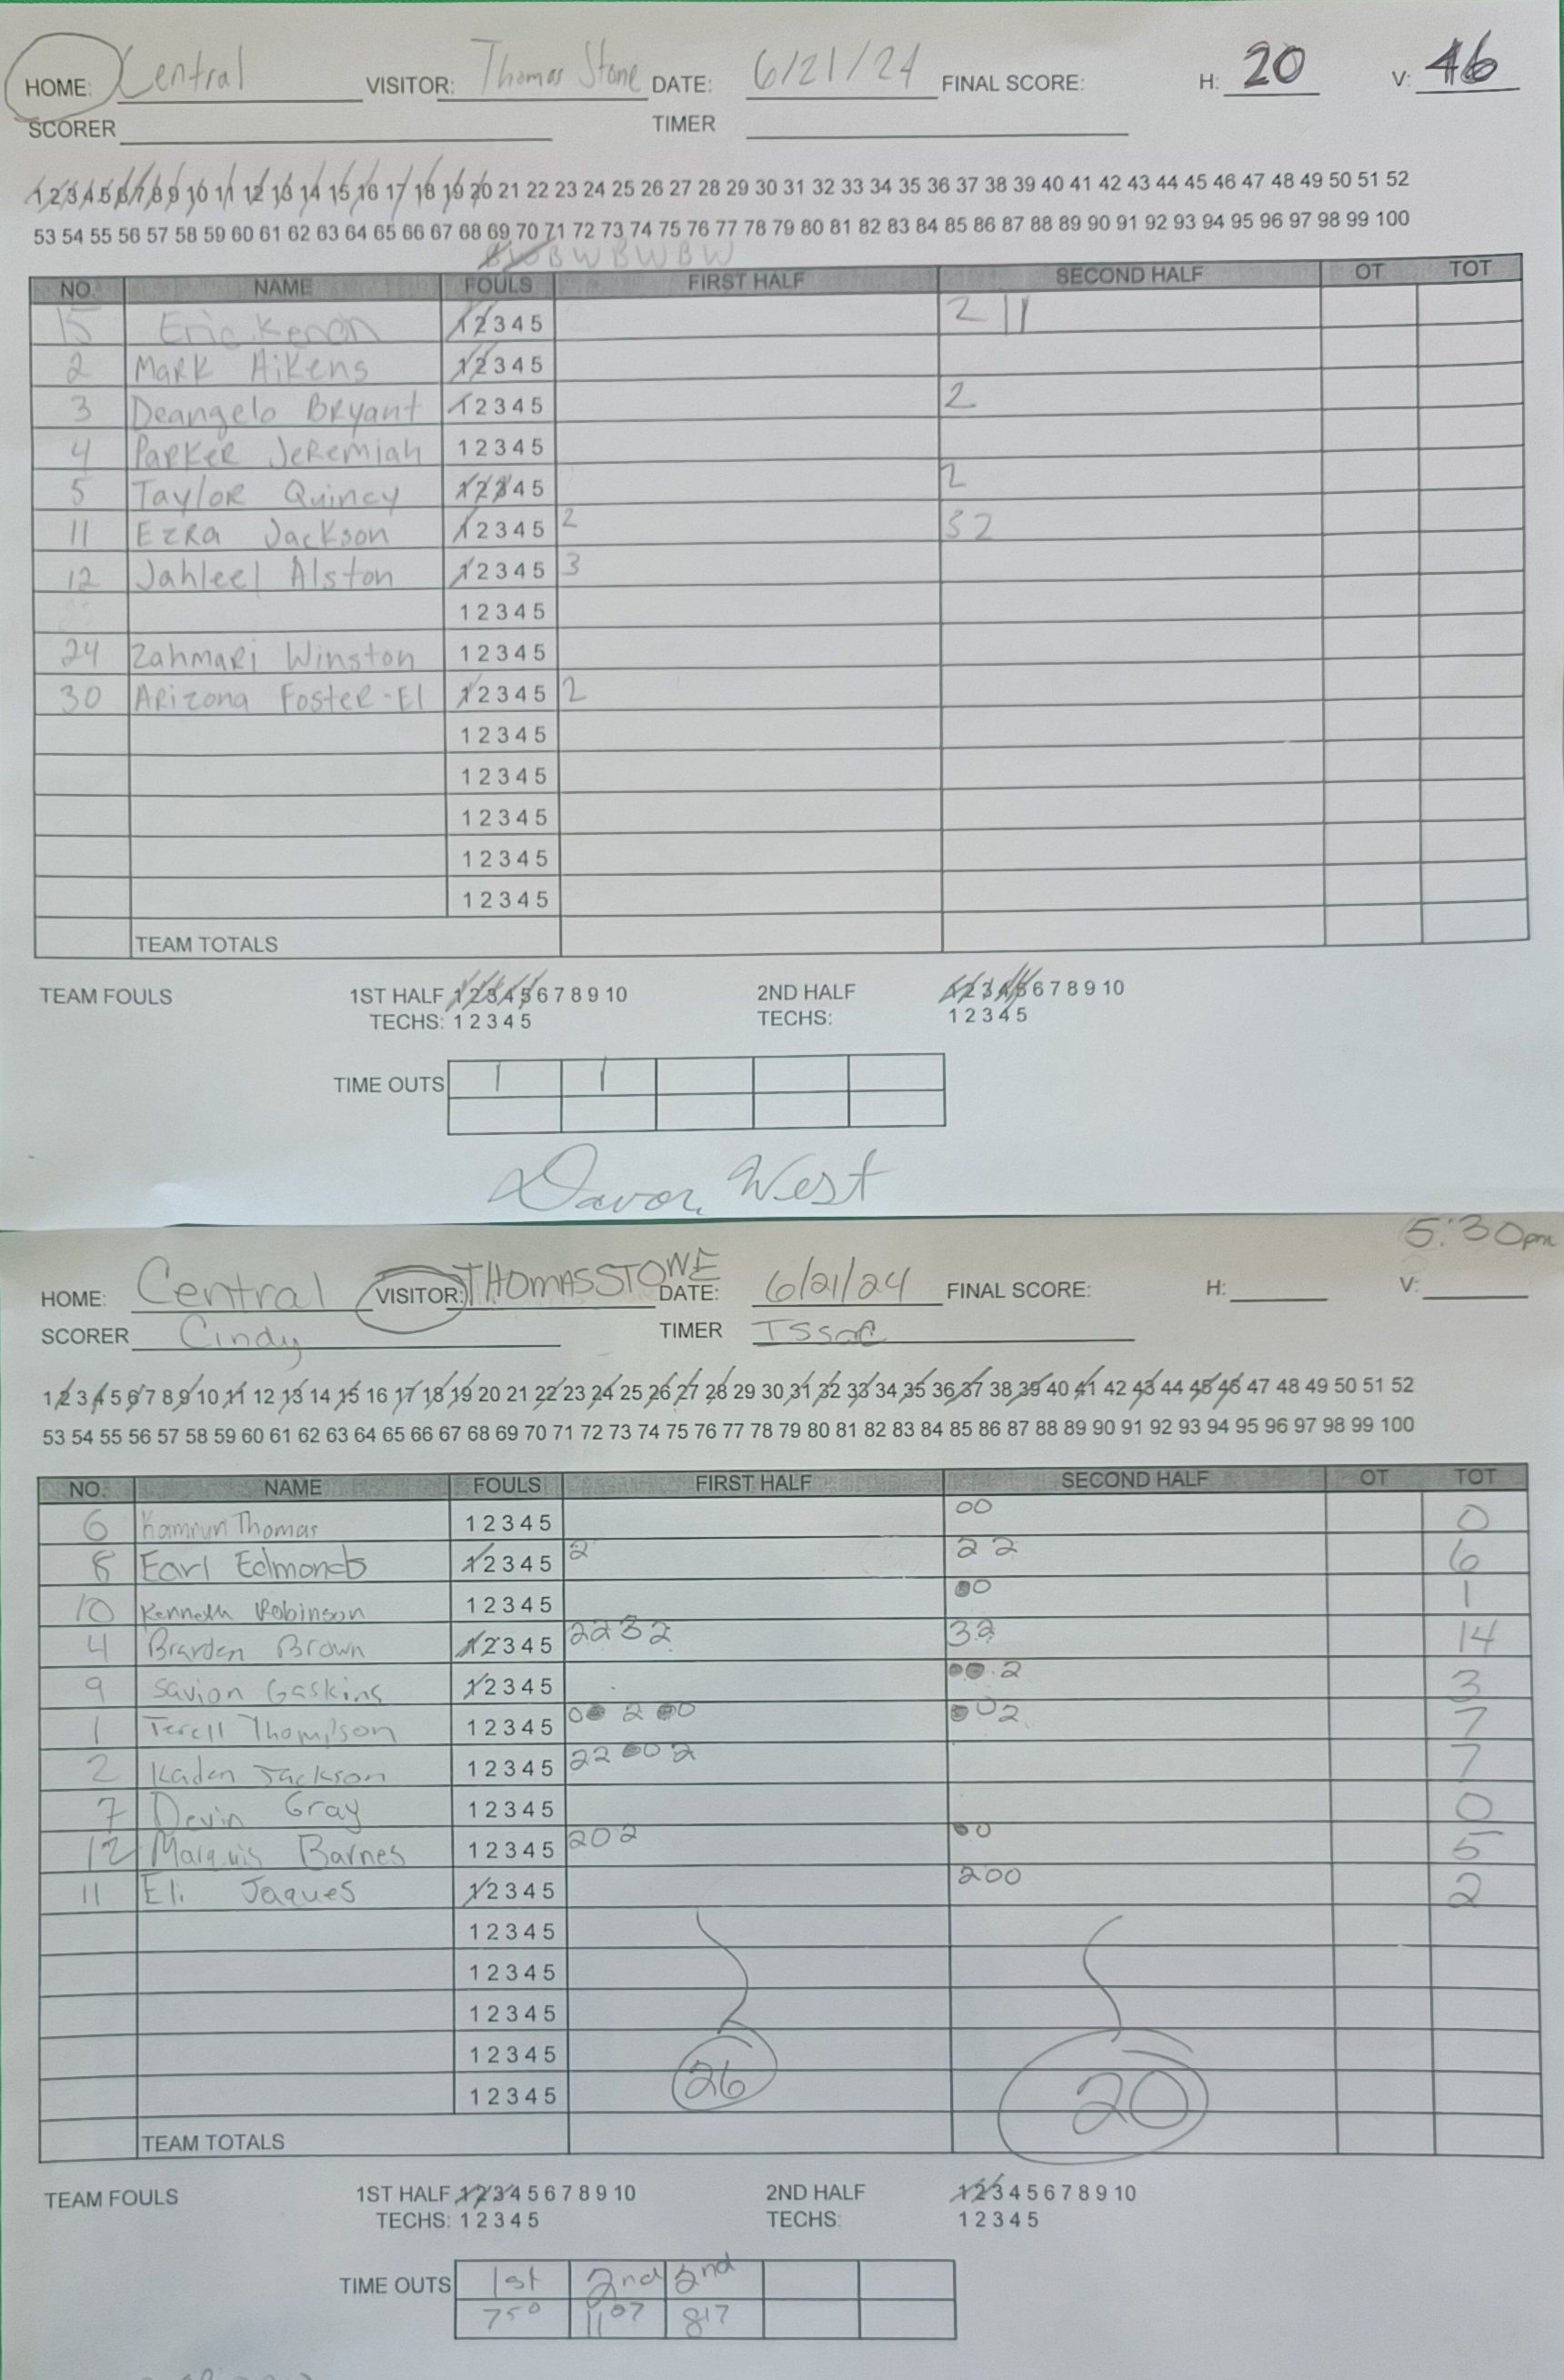 HOME: Central VISITOR: Thomas Stone DATE: 6/21/24 FINAL SCORE: H: 20 V: 46
SCORER TIMER
1 2 3 4 5 6 7 8 9 10 11 12 13 14 15 16 17 18 19 20 21 22 23 24 25 26 27 28 29 30 31 32 33 34 35 36 37 38 39 40 41 42 43 44 45 46 47 48 49 50 51 52
53 54 55 56 57 58 59 60 61 62 63 64 65 66 67 68 69 70 71 72 73 74 75 76 77 78 79 80 81 82 83 84 85 86 87 88 89 90 91 92 93 94 95 96 97 98 99 100
B W B W B W B W
NO. NAME FOULS FIRST HALF SECOND HALF OT TOT
15 Eric Kenon 1 2 3 4 5 2 1 1
2 Mark Aikens 1 2 3 4 5
3 Deangelo Bryant 1 2 3 4 5 2
4 Parker Jeremiah 1 2 3 4 5
5 Taylor Quincy 1 2 3 4 5 2
11 Ezra Jackson 1 2 3 4 5 2 3 2
12 Jahleel Alston 1 2 3 4 5 3
1 2 3 4 5
24 Zahmari Winston 1 2 3 4 5
30 Arizona Foster-El 1 2 3 4 5 2
1 2 3 4 5
1 2 3 4 5
1 2 3 4 5
1 2 3 4 5
1 2 3 4 5
TEAM TOTALS
TEAM FOULS 1ST HALF 1 2 3 4 5 6 7 8 9 10 2ND HALF 1 2 3 4 5 6 7 8 9 10
TECHS: 1 2 3 4 5 TECHS: 1 2 3 4 5
TIME OUTS 1 1
Davon West
5:30pm
HOME: Central VISITOR: THOMAS STONE DATE: 6/21/24 FINAL SCORE: H: V:
SCORER Cindy TIMER Issac
1 2 3 4 5 6 7 8 9 10 11 12 13 14 15 16 17 18 19 20 21 22 23 24 25 26 27 28 29 30 31 32 33 34 35 36 37 38 39 40 41 42 43 44 45 46 47 48 49 50 51 52
53 54 55 56 57 58 59 60 61 62 63 64 65 66 67 68 69 70 71 72 73 74 75 76 77 78 79 80 81 82 83 84 85 86 87 88 89 90 91 92 93 94 95 96 97 98 99 100
NO. NAME FOULS FIRST HALF SECOND HALF OT TOT
6 Kamrun Thomas 1 2 3 4 5 00 0
8 Earl Edmonds 1 2 3 4 5 2 2 2 6
10 Kenneth Robinson 1 2 3 4 5 00 1
4 Brarden Brown 1 2 3 4 5 2 2 3 2 3 2 14
9 Savion Gaskins 1 2 3 4 5 00 2 3
1 Terell Thompson 1 2 3 4 5 00 2 00 00 2 7
2 Kaden Jackson 1 2 3 4 5 2 2 00 2 7
7 Devin Gray 1 2 3 4 5 0
12 Marquis Barnes 1 2 3 4 5 2 0 2 00 5
11 Eli Jaques 1 2 3 4 5 2 0 0 2
1 2 3 4 5
1 2 3 4 5
1 2 3 4 5
1 2 3 4 5
1 2 3 4 5
26 20
TEAM TOTALS
TEAM FOULS 1ST HALF 1 2 3 4 5 6 7 8 9 10 2ND HALF 1 2 3 4 5 6 7 8 9 10
TECHS: 1 2 3 4 5 TECHS: 1 2 3 4 5
TIME OUTS 1st 2nd 2nd
7 50 11 07 8 17